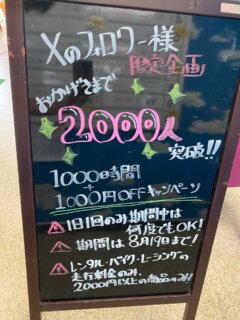 Xのフォロワー様
限定企画
おかげさまで
2000人
突破!!
1000時間
+
1000円OFFキャンペーン
⚠1日1回のみ期間中は
何度でもOK!
⚠期間は8月19日まで!
⚠レンタル・バイク・レーシングの
走行料金のみ、
2000円以上の商品のみ!!